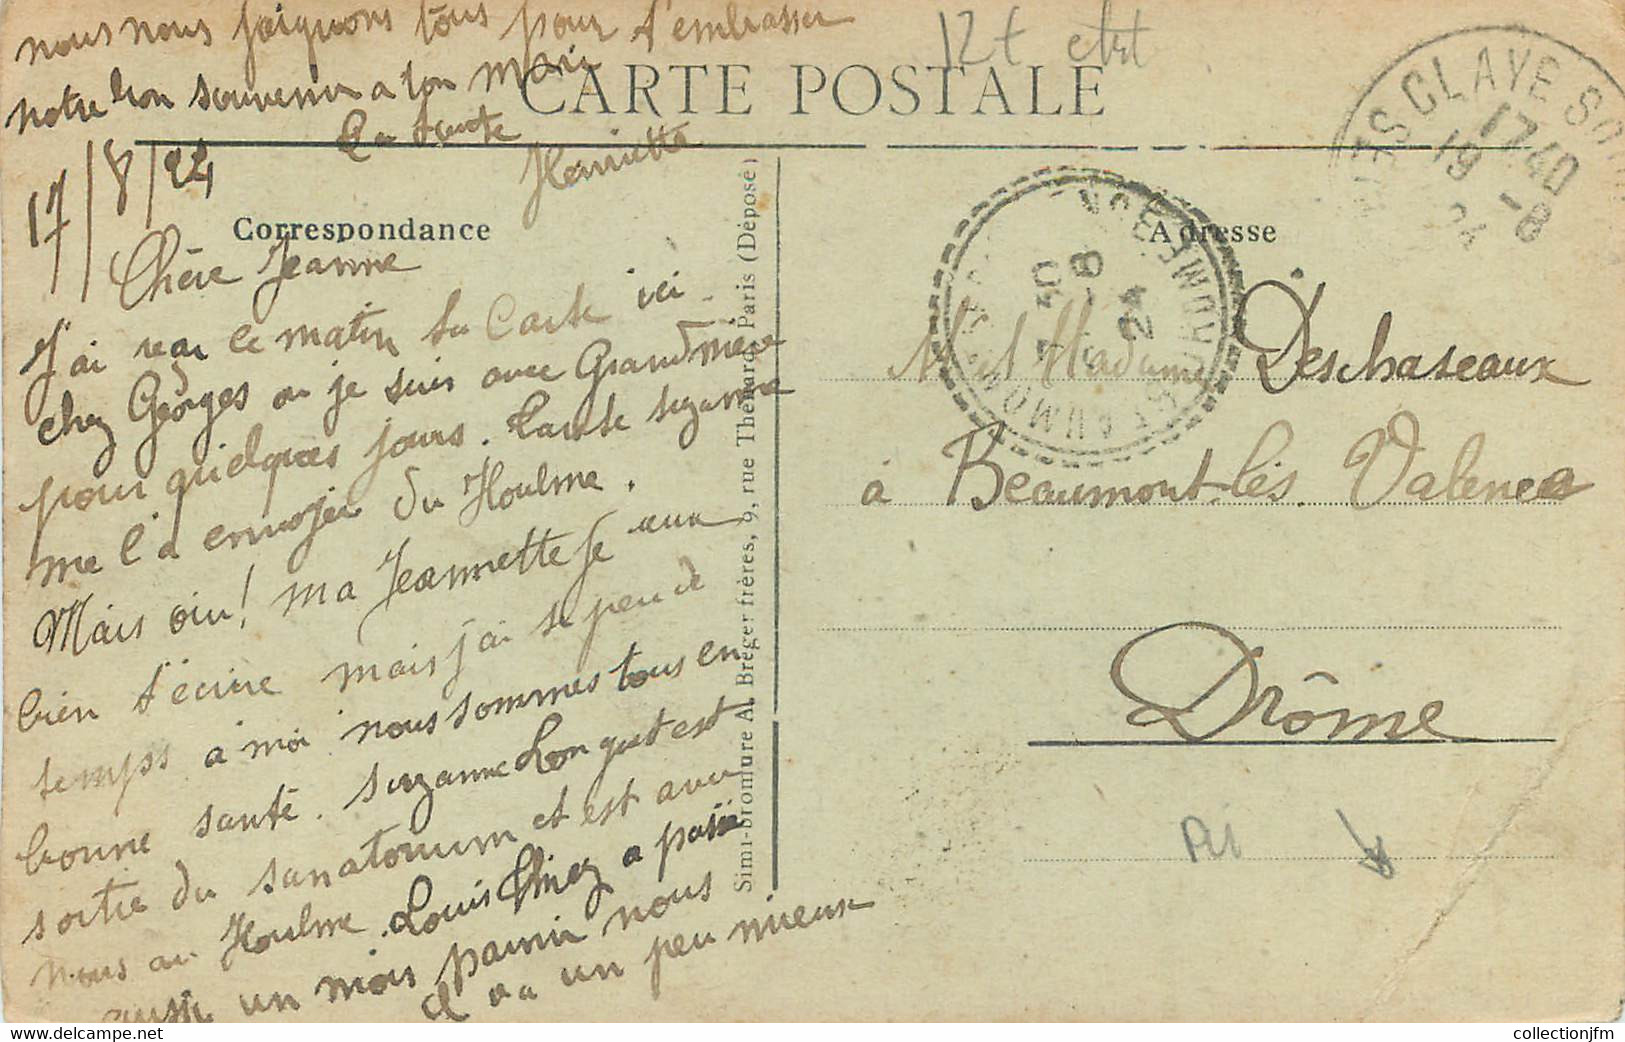 nous nous joignons tous pour t'embrasser
notre bon souvenir a ton mari
La tante
Henriette
12t
CARTE POSTALE
17/8/24
Correspondance
Adresse
Chère Jeanne
J'ai reçu ce matin ta Carte ici
chez Georges ou je suis avec Grandmère
pour quelques jours. Tante Suzanne
me l'a envoyée du Houlme.
Mais oui! ma Jeannette je veux
bien t'écrire mais j'ai si peu de
temps à moi nous sommes tous en
bonne santé. Suzanne Longuet est
sortie du sanatorium et est avec
nous au Houlme. Louis Chiez a passé
aussi un mois parmi nous
il va un peu mieux
Simi-bromure A. Breger frères, 9, rue Thénard, Paris (Déposé)
CLAYE SO
1740
19 -8
24
DROME
BEAUMONT
30
-8
24
M et Madame Deschaseaux
à Beaumont-lès-Valence
Drôme
collectionjfm